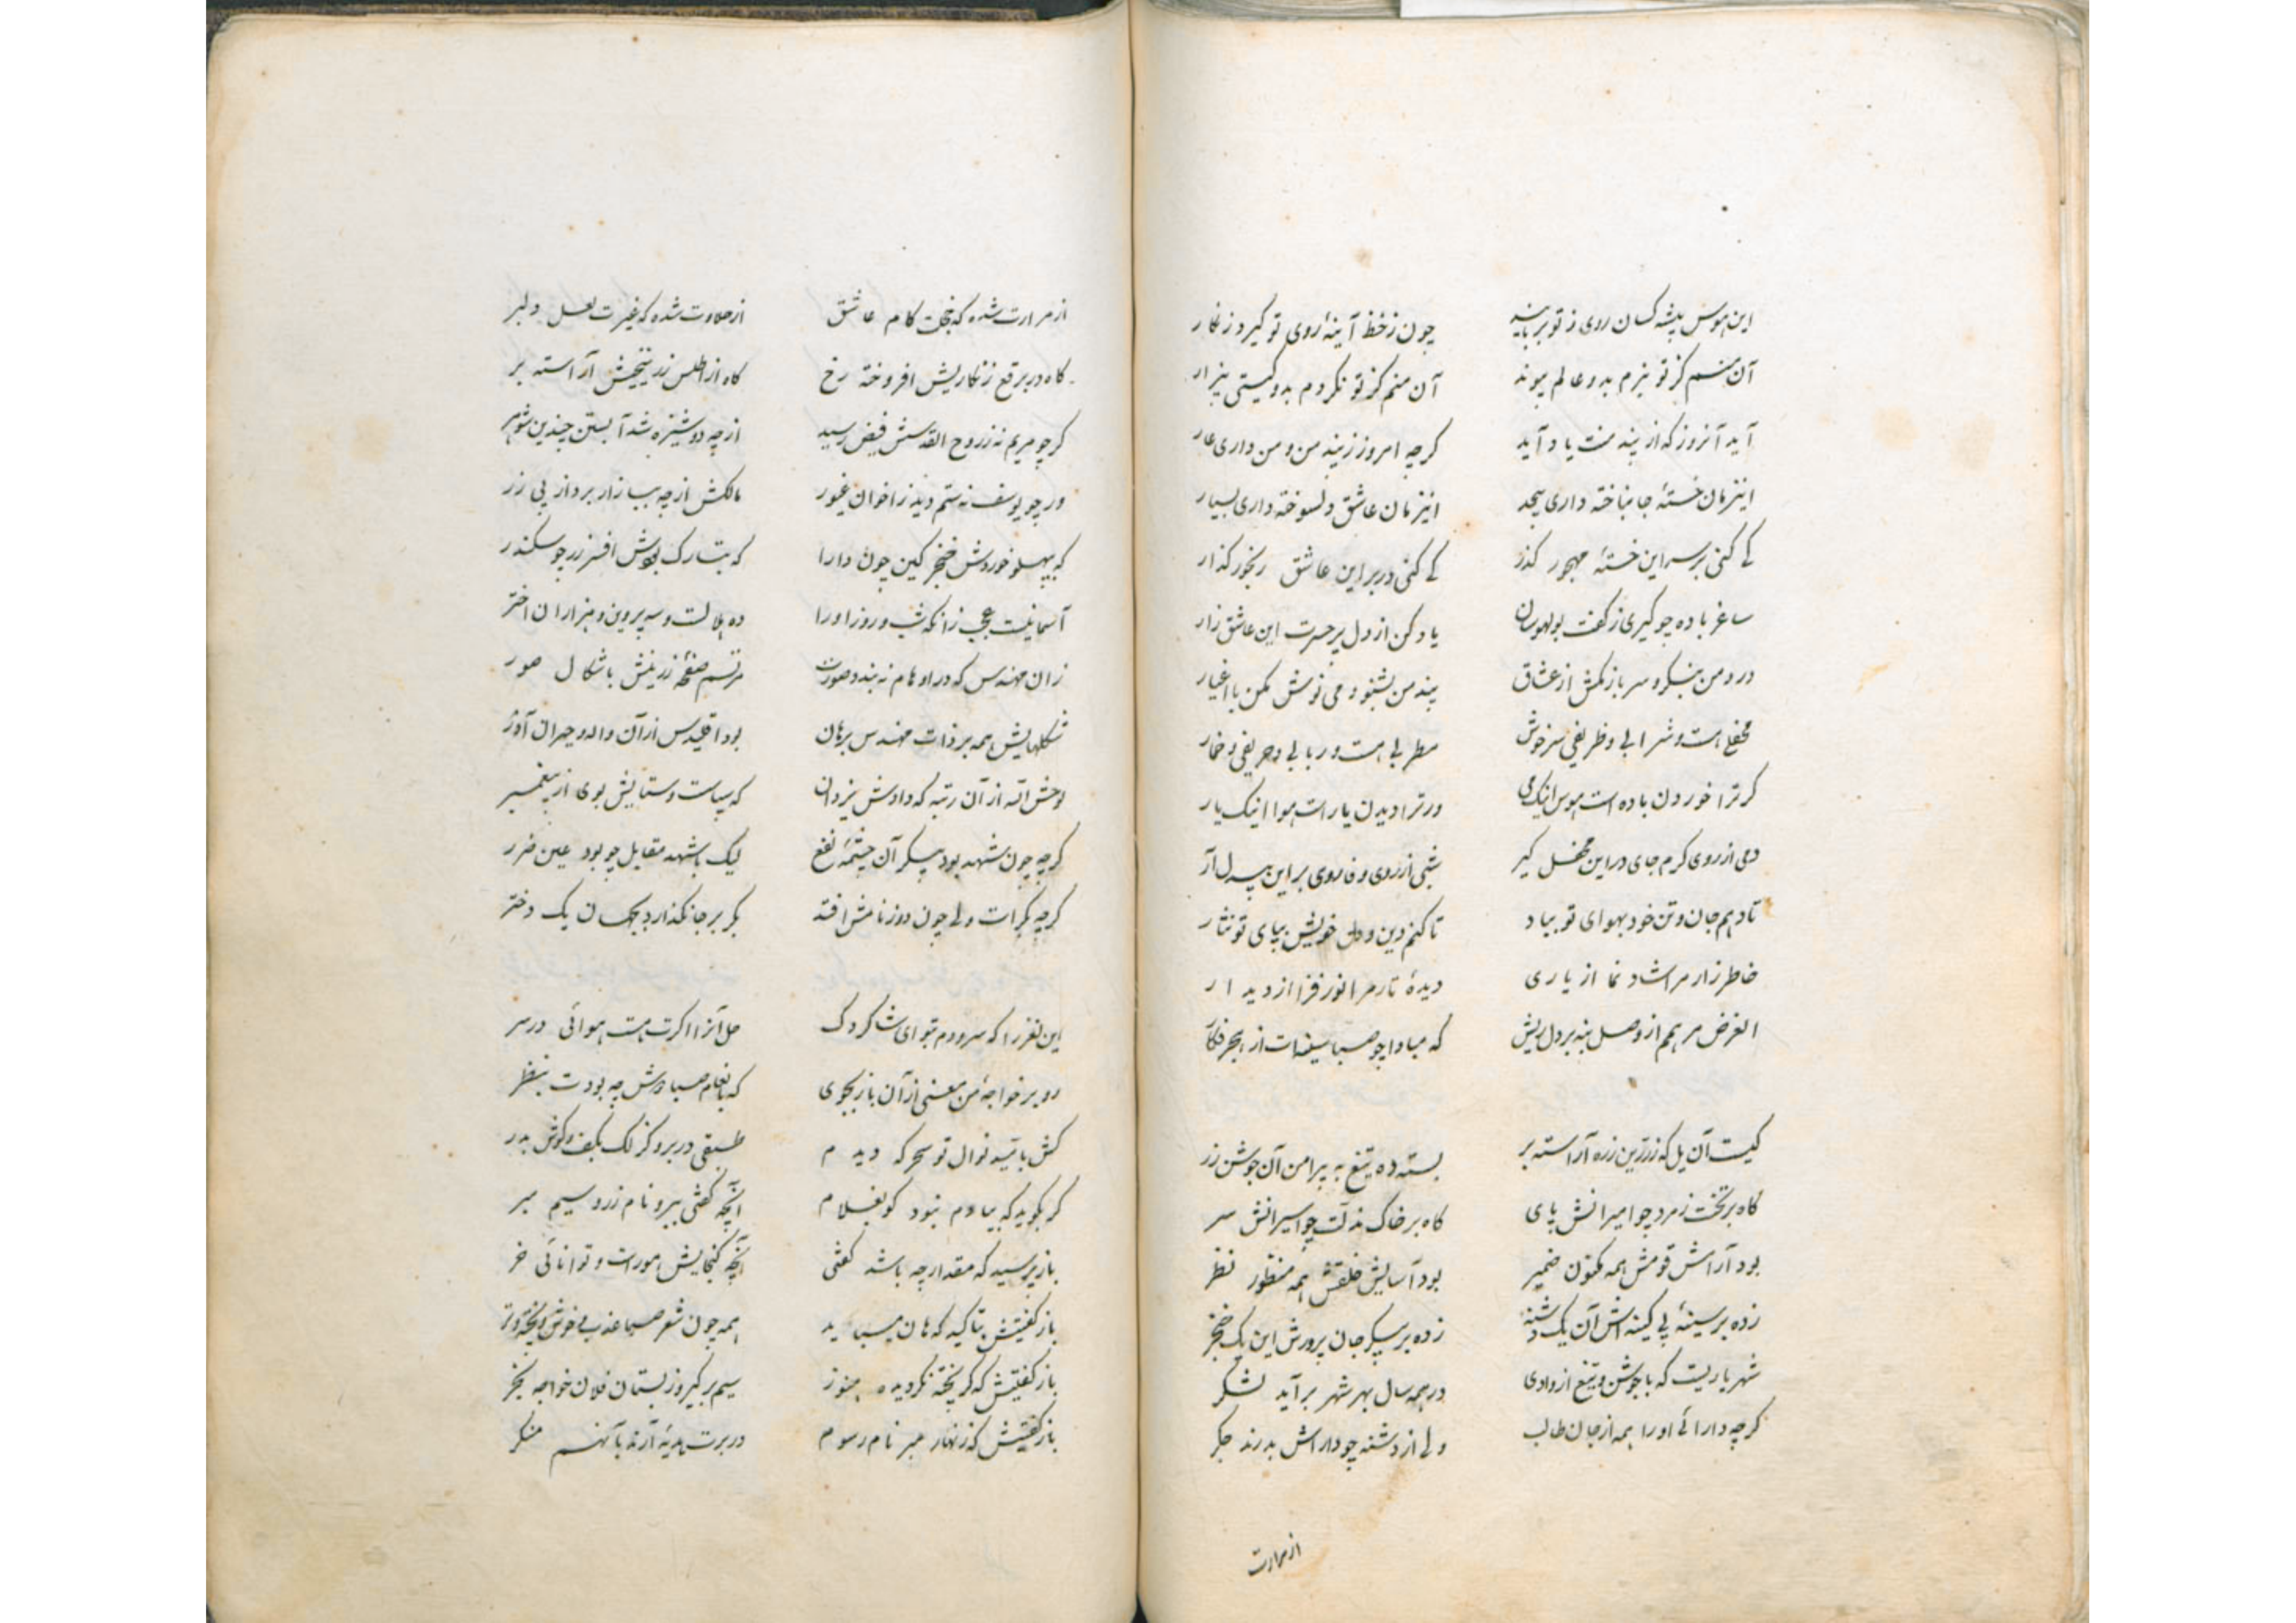 این هوس پیشه کسان روی ز تو برتابند چون ز خط آینهٔ روی تو گیرد زنگار
آن منم کز تو نبرم بدو عالم پیوند آن منم کز تو نکردم بدو گیتی بیزار
آید آنروز که از بند منت یاد آید گرچه امروز ز بند من و من داری عار
اینزمان خستهٔ جانباخته داری بیحد اینزمان عاشق دلسوخته داری بسیار
کی کنی بر سر این خستهٔ مهجور گذر کی کنی در بر این عاشق رنجور گذار
ساغر باده چو گیری ز کف بولهوسان یاد کن از دل پر حسرت این عاشق زار
درد من بنگر و سر باز مکش از عشاق پند من بشنو و می نوش مکن با اغیار
محفلی هست و شرابی و ظریفی سرخوش مطربی هست و ربابی و حریفی و خمار
گر ترا خوردن باده است هوس اینک می ور ترا دیدن یار است هوا اینک یار
دمی از روی کرم جای در این محفل گیر شبی از روی وفا روی بر این بیدل آر
تا دهم جان و تن خود بهوای تو بباد تا کنم دین و دل خویش بپای تو نثار
خاطر زار مرا شاد نما از یاری دیدهٔ تار مرا نور فزا از دیدار
الغرض مرهم از وصل بنه بر دل ریش که مبادا چو صبا سینه‌ات از هجر فکار
کیست آن یل که ز زرین زره آراسته بر بسته ده تیغ به پیرامن آن جوشن زر
گاه بر تخت زمرد چو امیرانش پای گاه بر خاک مذلت چو اسیرانش سر
بود آرامش قومش همه مکنون ضمیر بود آسایش خلقش همه منظور نظر
زده بر سینهٔ بی کینه‌اش آن یک دشنه زده بر پیکر جان پرورش این یک خنجر
شهریاریست که با جوشن و تیغ از وادی در همه سال بهر شهر برآید لشکر
گرچه دارائی او را همه از جان طالب ولی از دشنه چو داراش بدرند جگر
از مرارت
از مرارت شده که خجلت کام عاشق از حلاوت شده که غیرت لعل دلبر
گاه در برقع زنگاریش افروخته رخ گاه از اطلس زرنیخیش آراسته بر
گر چو مریم نه ز روح القدسش فیض رسید از چه دوشیزه شد آبستن چندین شوهر
ور چو یوسف نه ستم دید ز اخوان غیور مالکش از چه ببازار برد از پی زر
که بپهلو خوردش خنجر کین چون دارا که بتارک بودش افسر زر چو سکندر
آسمانیست عجب زانکه شب و روز او را ده هلالست و سه پروین و هزاران اختر
زان مهندس که در اوهام نه بندد صورت مرتسم صفحهٔ زرینش باشکال صور
شکلهایش همه بر ذات مهندس برهان بود اقلیدس از آن واله و حیران آذر
لوحش الله از آن رتبه که دادش یزدان که بیاست و ستایش بوی از پیغمبر
گرچه چون شهد بود پیکر آن چشمهٔ نفع لیک با شهد مقابل چو بود عین ضرر
گرچه بکرات ولی چون دوزنامش افتد بکر بر جا نگذارد بجهان یک دختر
این لغز را که سرودم بتو ای شاگردک حل آنرا اگرت هست هوائی در سر
رو بر خواجهٔ من معنی از آن باز بجوی که بانعام صبا دوش چه بودت بنظر
کش باتید نوال تو سحرگه دیدم طبقی در بر و گزلک بکف و گوش بدر
که بگوید که بیادم نبود گو بغلام آنچه گفتی ببر و نام زر و سیم مبر
باز پرسید که مقدار چه باشد گفتی آنچه گنجایش مور است و توانائی خر
باز گفتیش بتاکید که هان میباید همه چون شعر صبا عذب و خوش و پخته و تر
باز گفتیش که گر پخته نگردیده هنوز سیم بر گیر و ز بستان فلان خواجه بخر
باز گفتیش که زنهار مبر نام رسوم در برت هدیه آرند بآنهم منگر